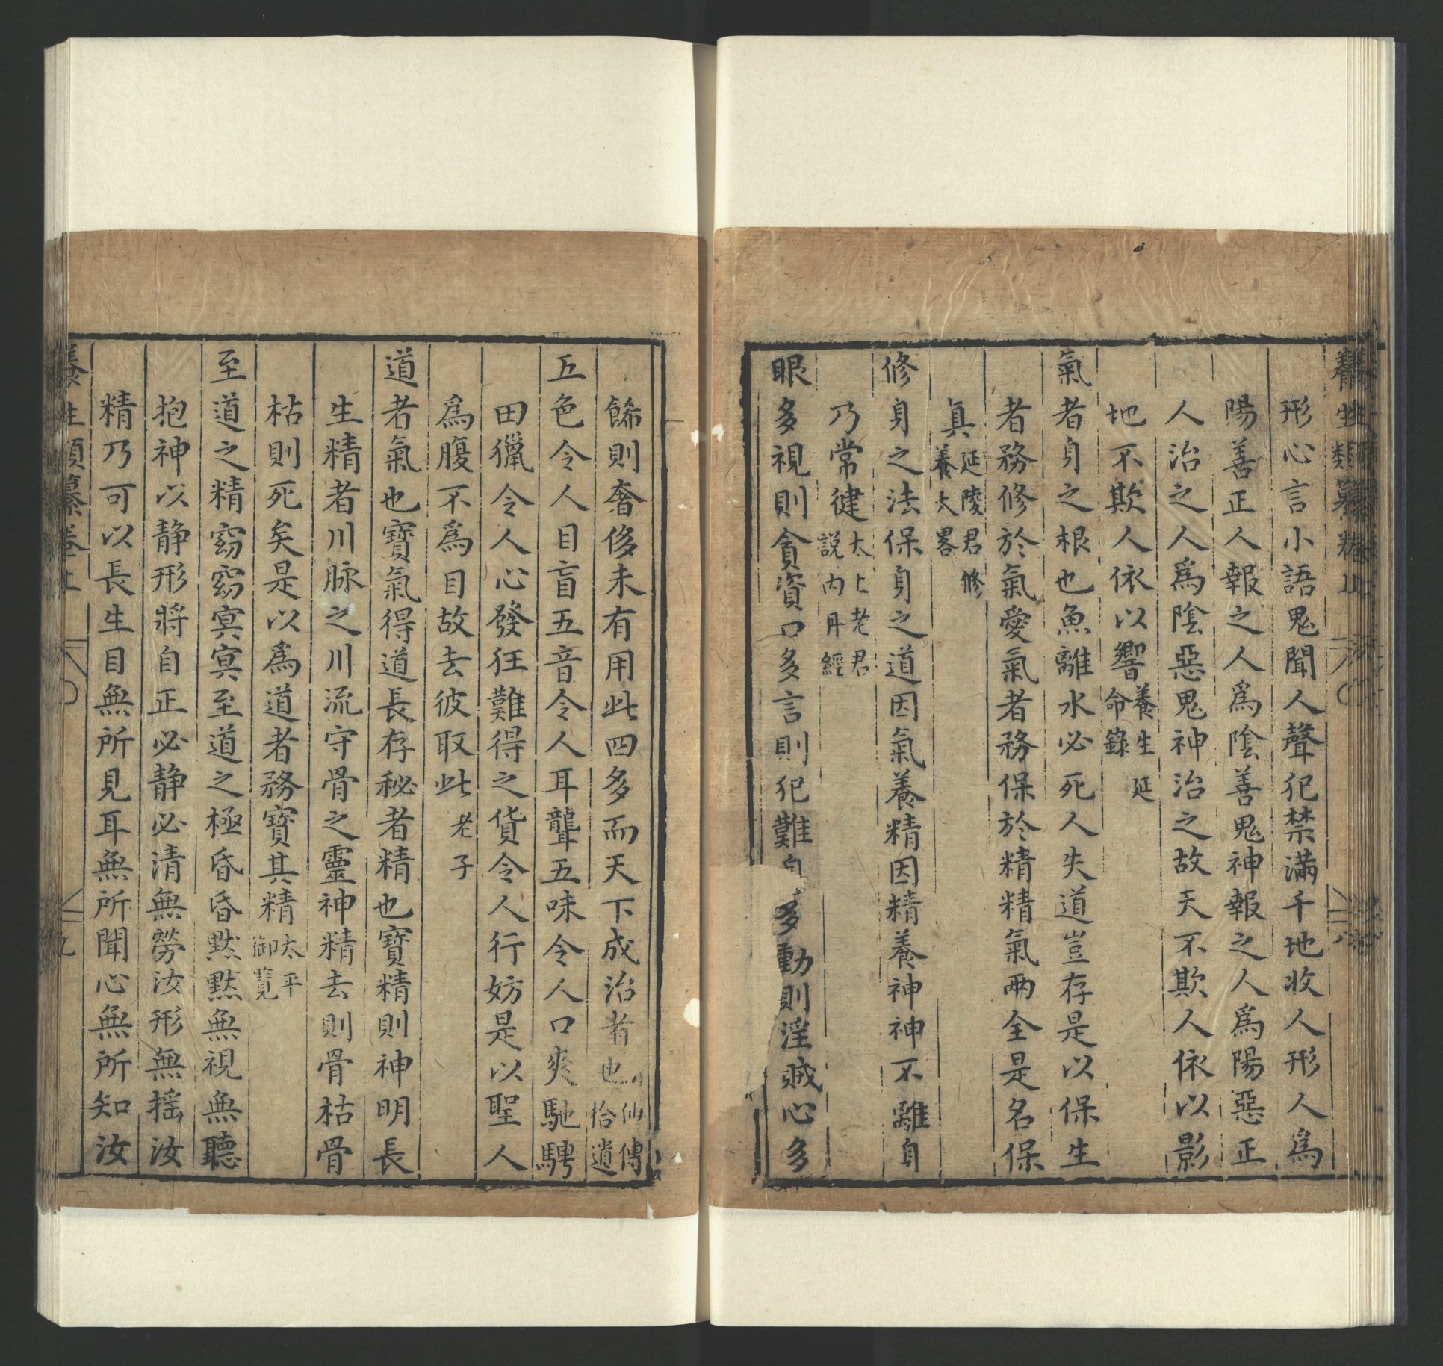 養生類纂卷上
形心言小語鬼聞人聲犯禁滿千地收人形人爲
陽善正人報之人爲陰善鬼神報之人爲陽惡正
人治之人爲陰惡鬼神治之故天不欺人依以影
地不欺人依以響養生延命錄
氣者身之根也魚離水必死人失道豈存是以保生
者務修於氣愛氣者務保於精精氣兩全是名保
真延陵君修養大畧
修身之法保身之道因氣養精因精養神神不離身
乃常健太上老君說內丹經
眼多視則貪資口多言則犯難身多動則淫賊心多
餙則奢侈未有用此四多而天下成治者也仙傳拾遺
五色令人目盲五音令人耳聾五味令人口爽馳騁
田獵令人心發狂難得之貨令人行妨是以聖人
爲腹不爲目故去彼取此老子
道者氣也寶氣得道長存秘者精也寶精則神明長
生精者川脉之川流守骨之靈神精去則骨枯骨
枯則死矣是以爲道者務寶其精太平御覽
至道之精窈窈冥冥至道之極昏昏默默無視無聽
抱神以静形將自正必静必清無勞汝形無揺汝
精乃可以長生目無所見耳無所聞心無所知汝
養生類纂卷上
九